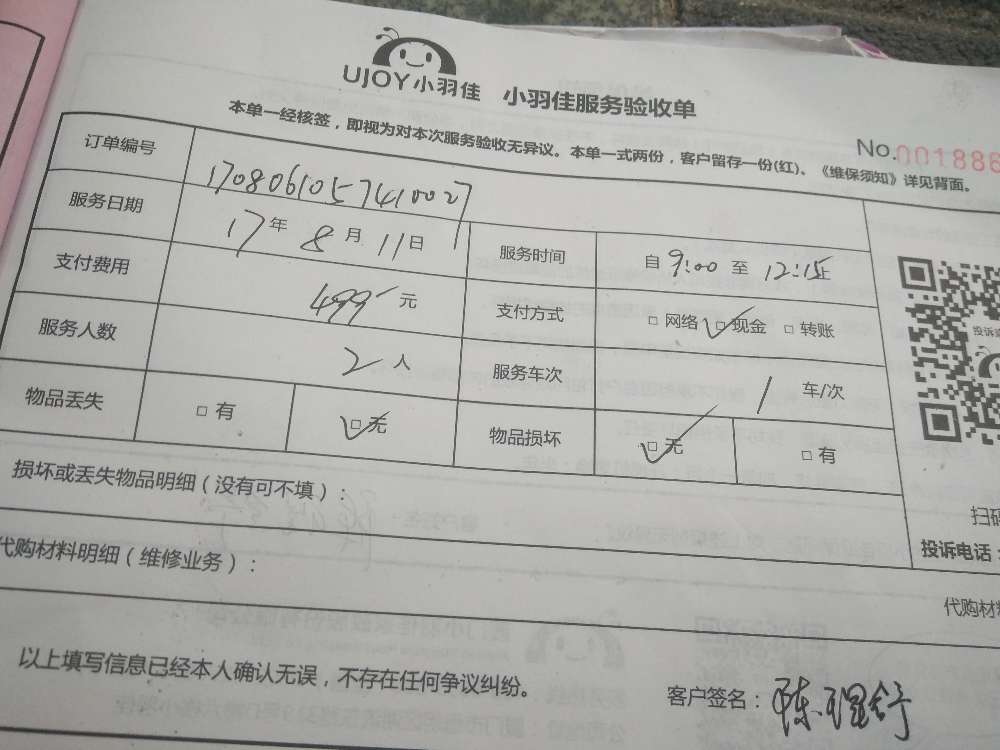 UJOY小羽佳 小羽佳服务验收单
本单一经核签，即视为对本次服务验收无异议。本单一式两份，客户留存一份(红)、《维保须知》详见背面。
No.001886
订单编号 1708061057410027
服务日期 17年 8月 11日 服务时间 自 9:00 至 12:15止
支付费用 499元 支付方式 □ 网络 □ 现金 □ 转账
服务人数 2人 服务车次 1 车/次
物品丢失 □ 有 □ 无 物品损坏 □ 无 □ 有
投诉
损坏或丢失物品明细（没有可不填）：
扫码
投诉电话：
代购材料明细（维修业务）：
代购材料
以上填写信息已经本人确认无误，不存在任何争议纠纷。
客户签名：陈